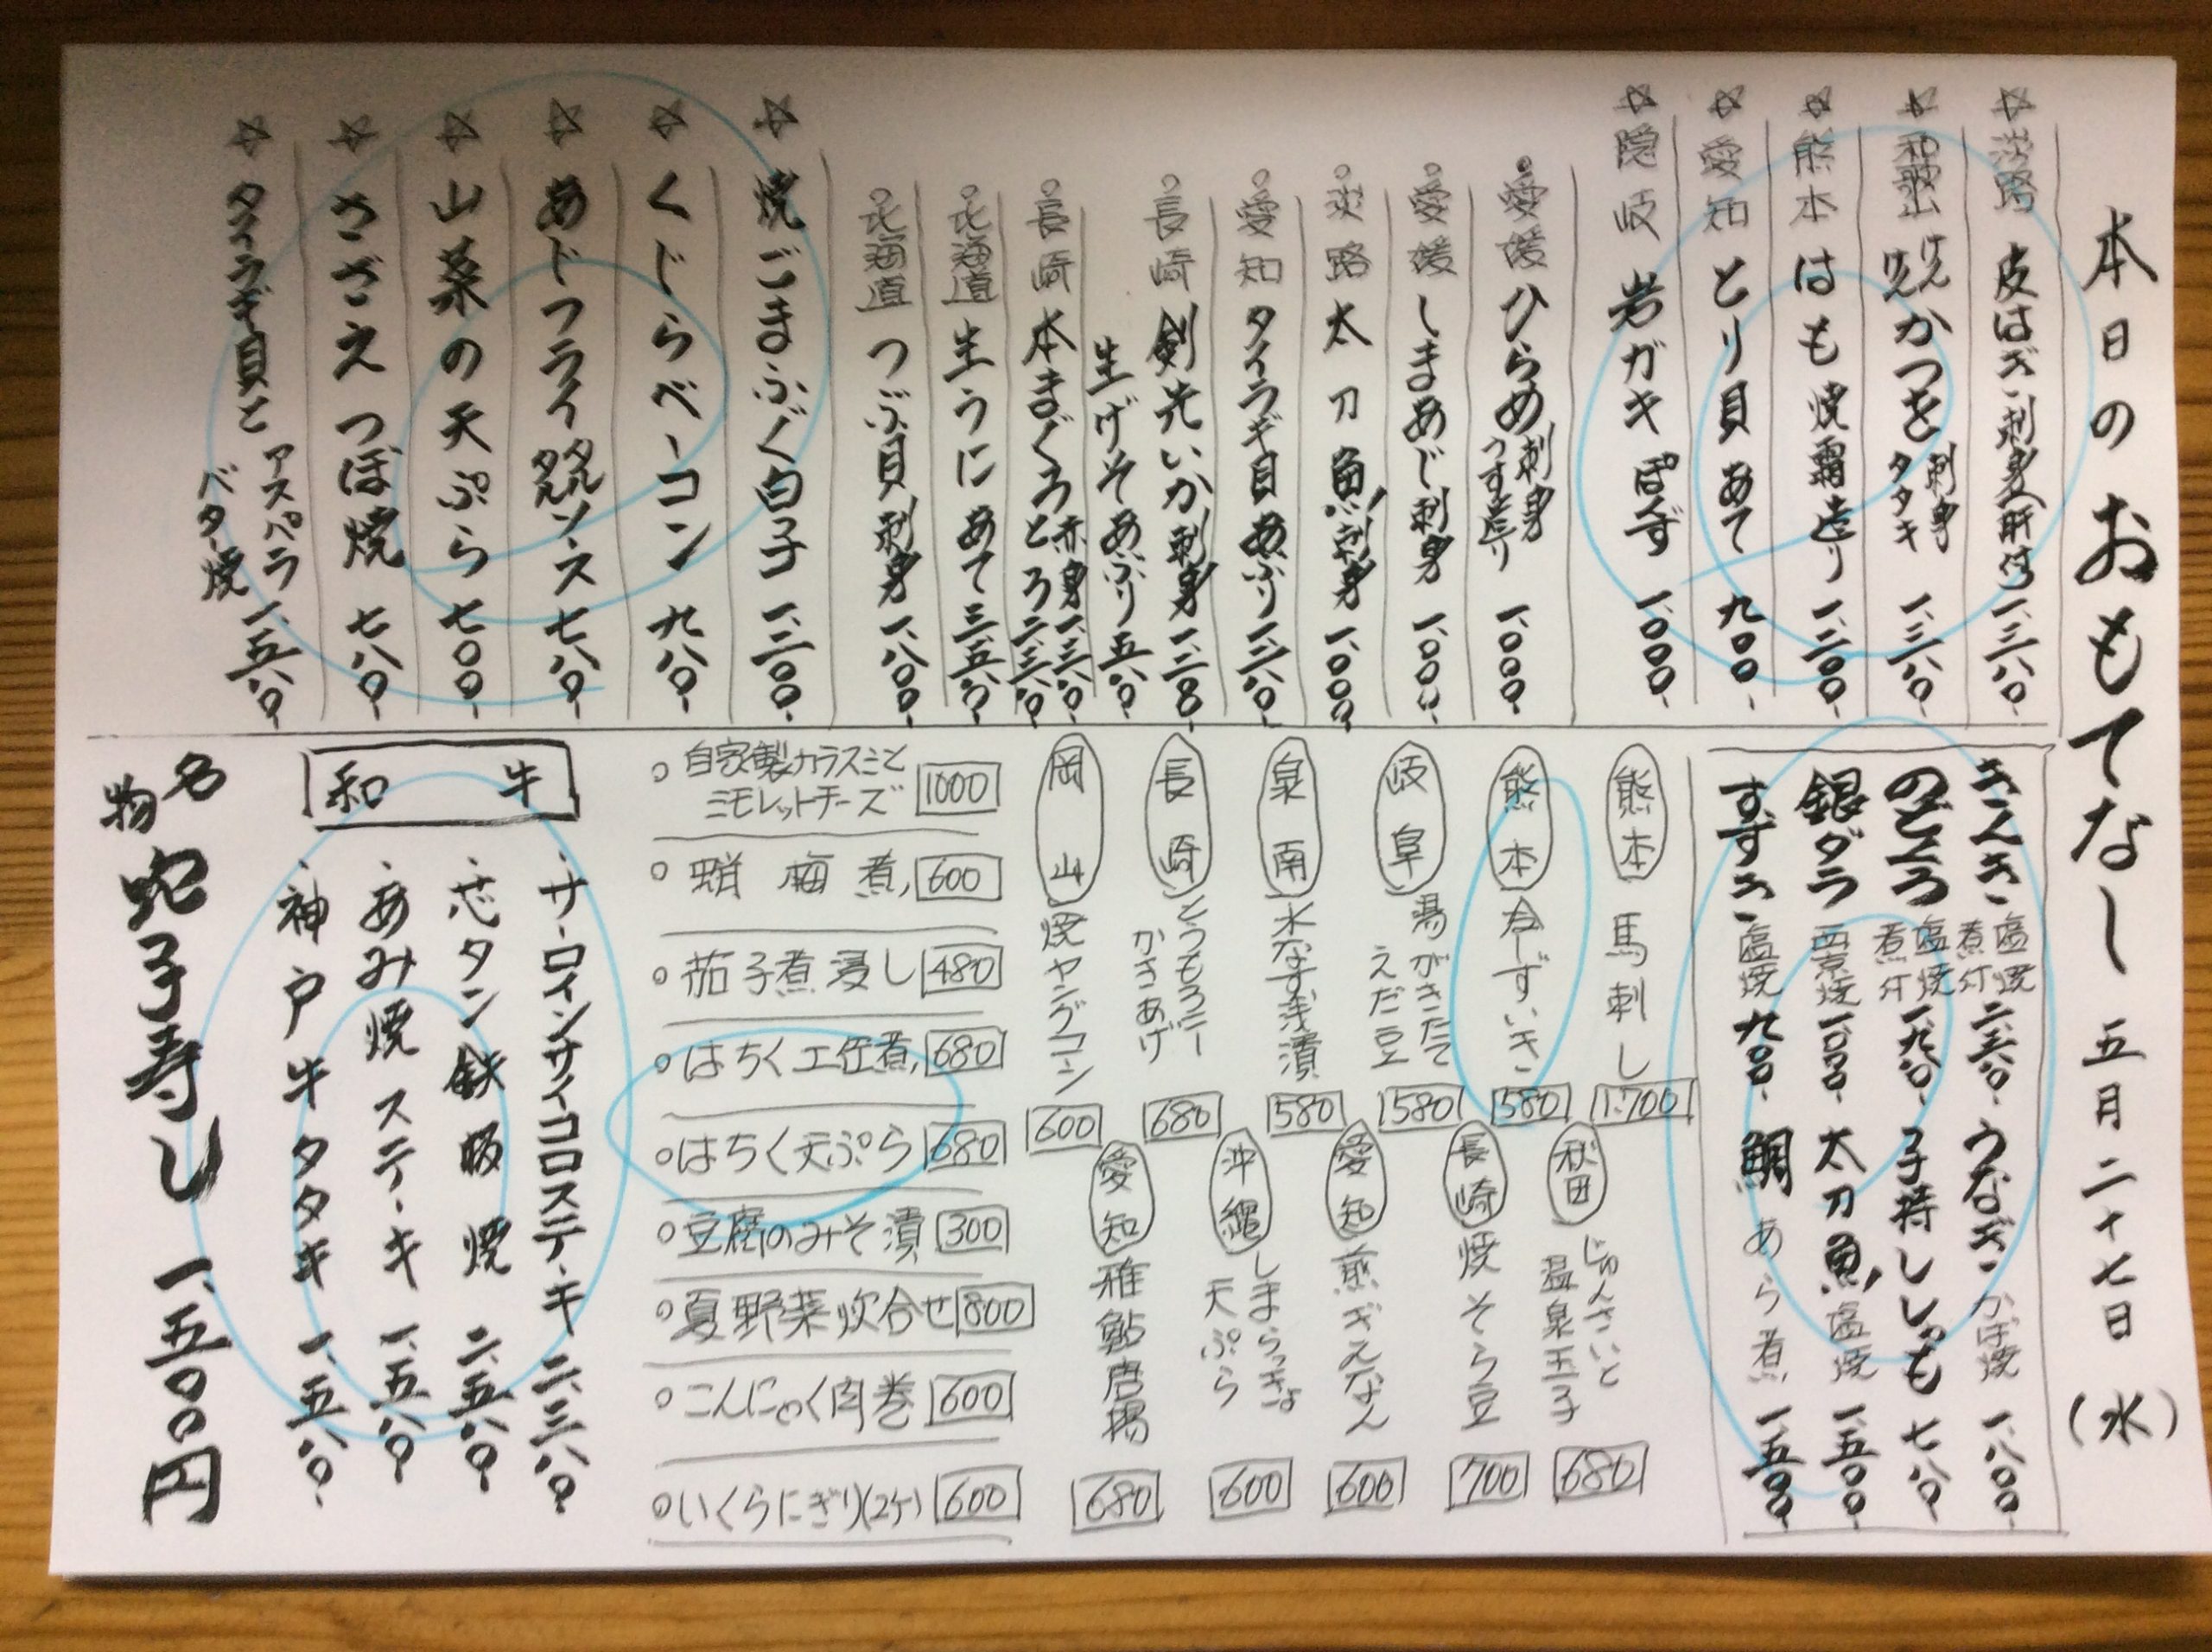 本日のおもてなし 五月二十七日(水)
☆淡路 皮はぎ刺身(肝付) 一、三八〇
☆和歌山 けんけんかつを 刺身 タタキ 一、三八〇
☆熊本 はも 焼霜造り 一、二〇〇
☆愛知 とり貝 あて 九〇〇
☆隠岐 岩ガキ ぽんず 一、〇〇〇
愛媛 ひらめ 刺身 うす造り 一、〇〇〇
愛媛 しまあじ 刺身 一、〇〇〇
淡路 太刀魚 刺身 一、〇〇〇
愛知 タイラギ貝 あぶり 一、二八〇
長崎 剣先いか 刺身
生げそあぶり 五八〇
長崎 本まぐろ 赤身 一、三八〇 とろ 二、三八〇
北海道 生うに あて 三、五八〇
北海道 つぶ貝 刺身 一、八〇〇
☆焼ごまふぐ白子 一、二〇〇
☆くじらベーコン 九八〇
☆あじフライ タルタルソース 七八〇
☆山菜の天ぷら 七〇〇
☆さざえ つぼ焼 七八〇
☆タイラギ貝と アスパラ バター焼 一、五八〇
きんき 塩焼 煮付 二、三八〇
うなぎ かば焼 一、八〇〇
のどぐろ 塩焼 煮付 一、九八〇
子持ししゃも 七八〇
銀ダラ 西京焼 一、〇〇〇
太刀魚 塩焼 一、五〇〇
すずき 塩焼 九八〇
鯛 あら煮 一、五〇〇
熊本 馬刺し 1.700
熊本 冷しずいき 580
岐阜 湯がきたて えだ豆 580
泉南 水なす浅漬 580
長崎 とうもろこし かきあげ 680
岡山 焼ヤングコン 600
秋田 じゅんさいと 温泉玉子 680
長崎 焼そら豆 700
愛知 煎ぎんなん 600
沖縄 しまらっきょ 天ぷら 600
愛知 稚鮎唐揚 680
○自家製カラスミと ミモレットチーズ 1000
○蛸 梅煮 600
○茄子煮浸し 480
○はちく土佐煮 680
○はちく天ぷら 680
○豆腐のみそ漬 300
○夏野菜炊合せ 800
○こんにゃく肉巻 600
○いくらにぎり(2ケ) 600
和牛
・サーロインサイコロステーキ 二、三八〇
・芯タン鉄板焼 二、五八〇
・あみ焼ステーキ 一、五八〇
・神戸牛タタキ 一、五八〇
名物 蛇子寿し 一、五〇〇円